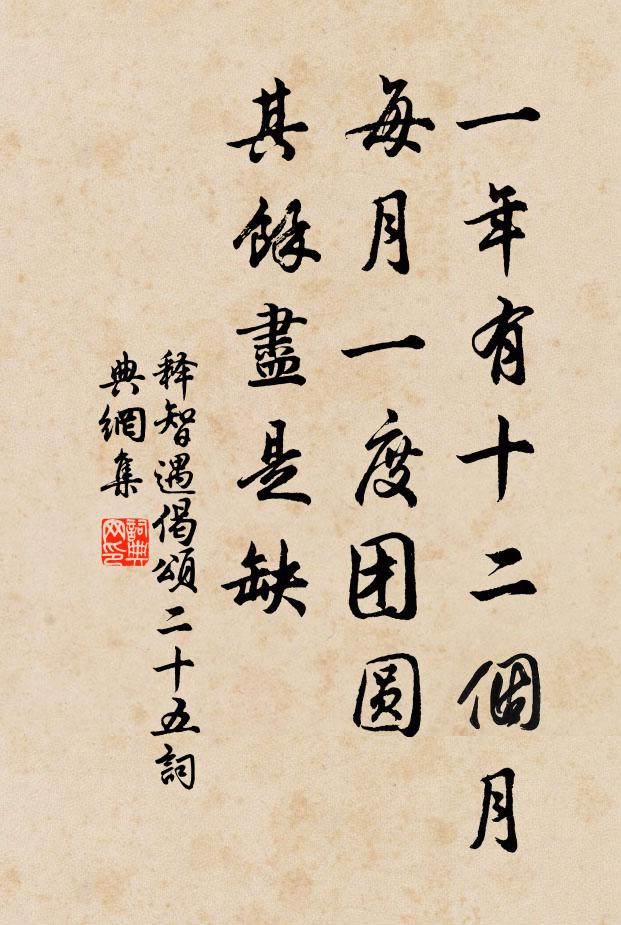 一年有十二個月
每月一度团圆
其餘盡是缺
释智遇偈頌二十五詞
典網集
詞典
网印